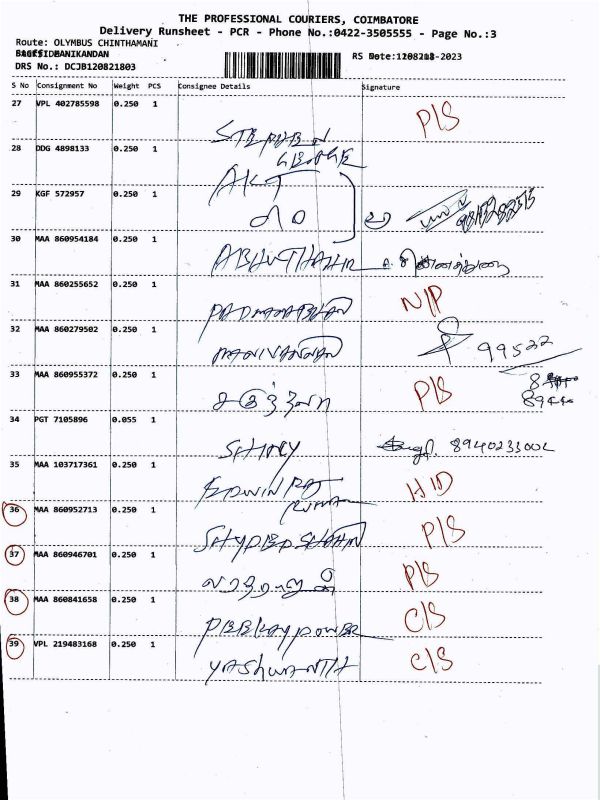 THE PROFESSIONAL COURIERS, COIMBATORE
Delivery Runsheet - PCR - Phone No.:0422-3505555 - Page No.:3
Route: OLYMBUS CHINTHAMANI
DRS No.: DCJB120821803
RS
S No Consignment No Weight PCS Consignee Details Signature
27 VPL 402785598 0.250 1 P/S
STEPHEN
GEORGE
28 DDG 4898133 0.250 1
AKT
29 KGF 572957 0.250 1
30 MAA 860954184 0.250 1
ABHUTHAHIR
31 MAA 860255652 0.250 1 N/P
PADMANABHAN
32 MAA 860279502 0.250 1
MANIVANNAN 99522
33 MAA 860955372 0.250 1 P/S
34 PGT 7105896 0.055 1
SHINY 8940233002
35 MAA 103717361 0.250 1 H/D
EDWIN RAJ
KUMAR
36 MAA 860952713 0.250 1 P/S
37 MAA 860946701 0.250 1 P/S
38 MAA 860841658 0.250 1 C/S
PEEKAY POWER
39 VPL 219483168 0.250 1 C/S
YASHWANTH